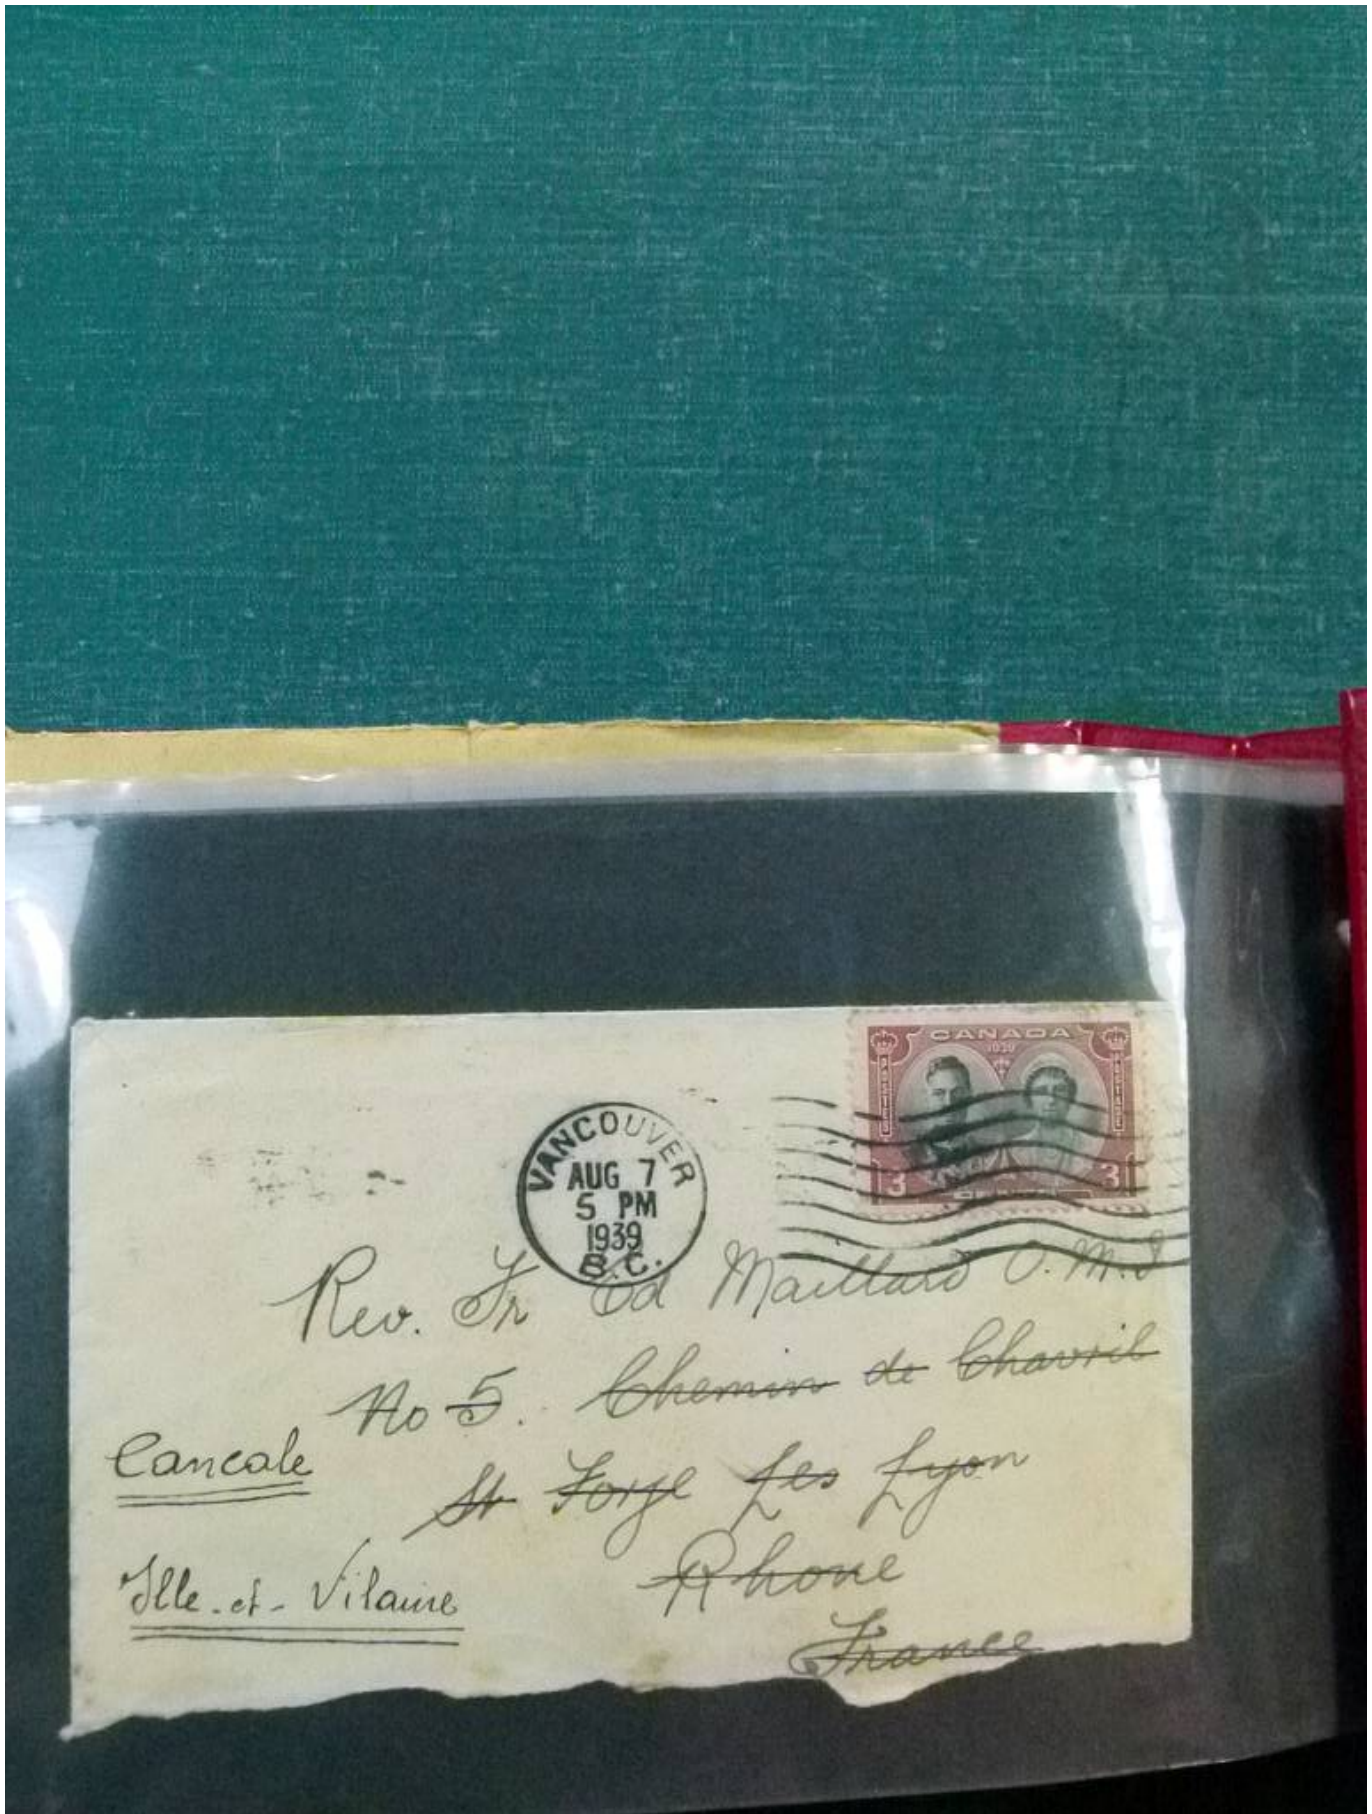 CANADA
1939
POSTES
POSTAGE
3
3
VANCOUVER
AUG 7
5 PM
1939
B.C.
Rev. Fr Ed Maillard O.M.I
No 5. Chemin de Chavril
St Foye Les Lyon
Rhone
France
Cancale
Ille-et-Vilaine